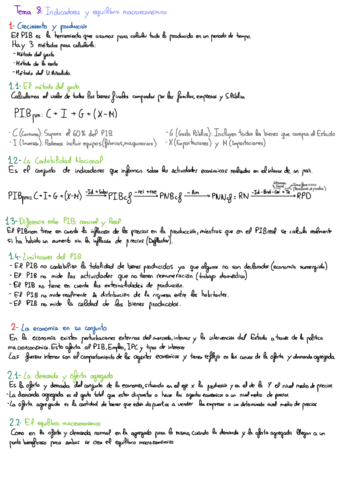 Tema 8: Indicadores y equilibrio macroeconómico
1- Crecimiento y producción
El PIB es la herramienta que usamos para calcular todo lo producido en un periodo de tiempo.
Hay 3 métodos para calcularlo:
- Método del gasto
- Método de la renta
- Método del V. Añadido.
1.1- El método del gasto
Calculamos el valor de todos los bienes finales comprados por las familias, empresas y S. Público
PIBpm: C + I + G + (X-M)
- C (Consumo): Supone el 60% del PIB
- G (Gasto Público): Incluyen todos los bienes que compra el Estado
- I (Inversión): Podemos incluir equipos (fábricas, maquinarias)
- X (Exportaciones) y M (Importaciones)
1.2- La Contabilidad Nacional
Es el conjunto de indicadores que informan sobre las actividades económicas realizadas en el interior de un país.
PIBpm = C + I + G + (X-M) PIBcf PNBcf PNNcf = RN RPD
1.3- Diferencia entre PIB nominal y Real
El PIB nom tiene en cuenta la inflación de los precios en la producción, mientras que en el PIB real se calcula realmente
si ha habido un aumento sin la inflación de precios (Deflactor).
1.4- Limitaciones del PIB
- El PIB no contabiliza la totalidad de bienes producidos ya que algunos no son declarados (economía sumergida)
- El PIB no mide las actividades que no tienen remuneración (trabajo doméstico)
- El PIB no tiene en cuenta las externalidades de producción.
- El PIB no mide realmente la distribución de la riqueza entre los habitantes.
- El PIB no mide la calidad de los bienes producidos.
2- La economía en su conjunto
En la economía existen perturbaciones externas del mercado, internas y la intervención del Estado a través de la política
macroeconómica. Esto afecta al PIB, Empleo, IPC y tipos de interés
Las fuerzas internas son el comportamiento de los agentes económicos y tienen reflejo en las curvas de la oferta y demanda agregada.
2.1- La demanda y oferta agregada
Es la oferta y demanda del conjunto de la economía, situando en el eje x la producción y en el de la Y el nivel medio de precios
- La demanda agregada es el gasto total que están dispuestos a hacer los agentes económicos a un nivel medio de precios.
- La oferta agregada es la cantidad de bienes que están dispuestas a vender las empresas a un determinado nivel medio de precios
2.2- El equilibrio macroeconómico
Como en la oferta y demanda normal, en la agregada pasa lo mismo, cuando la demanda y la oferta agregada llegan a un
punto beneficioso para ambos se crea el equilibrio macroeconómico